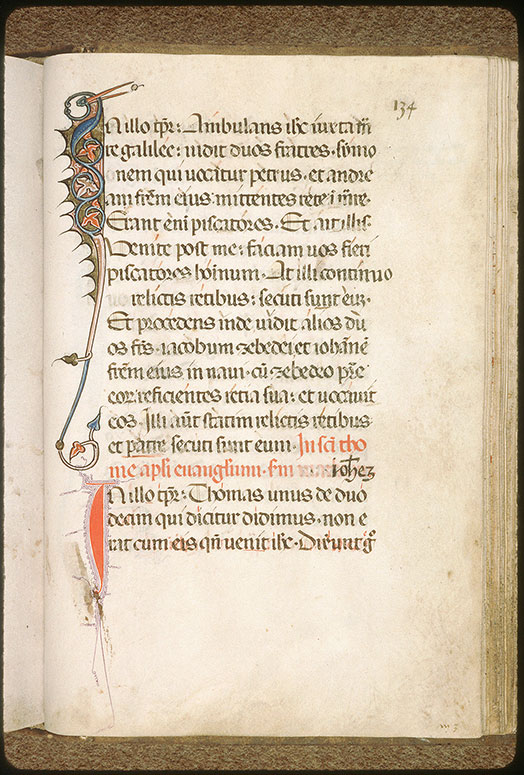 134
N illo tp̄r: Ambulans ih̄c iuxta m̄
re galilee: uidit duos fratres. symo
nem qui uocatur petrus. et andre
am frēm eius mittentes rete i m̄re.
Erant eni piscatores. Et ait illis.
Uenite post me: faciam uos fieri
piscatores hoinum. At illi continuo
relictis retibus: secuti sunt eum.
Et procedens inde uidit alios du
os fr̄s. iacobum zebedei et iohanē
frēm eius in naui. cū zebedeo p̄re
eor reficientes retia sua: et uocauit
eos. Illi aūt statim relictis retibus
et patre secuti sunt eum. In sc̄i tho
me apl̄i euangl̄ium. sm̄ ioh̄ez
N illo tp̄r: Thomas unus de duo
decim qui dicitur didimus. non e
rat cum eis qn̄ uenit ih̄c. Dixerunt ḡ